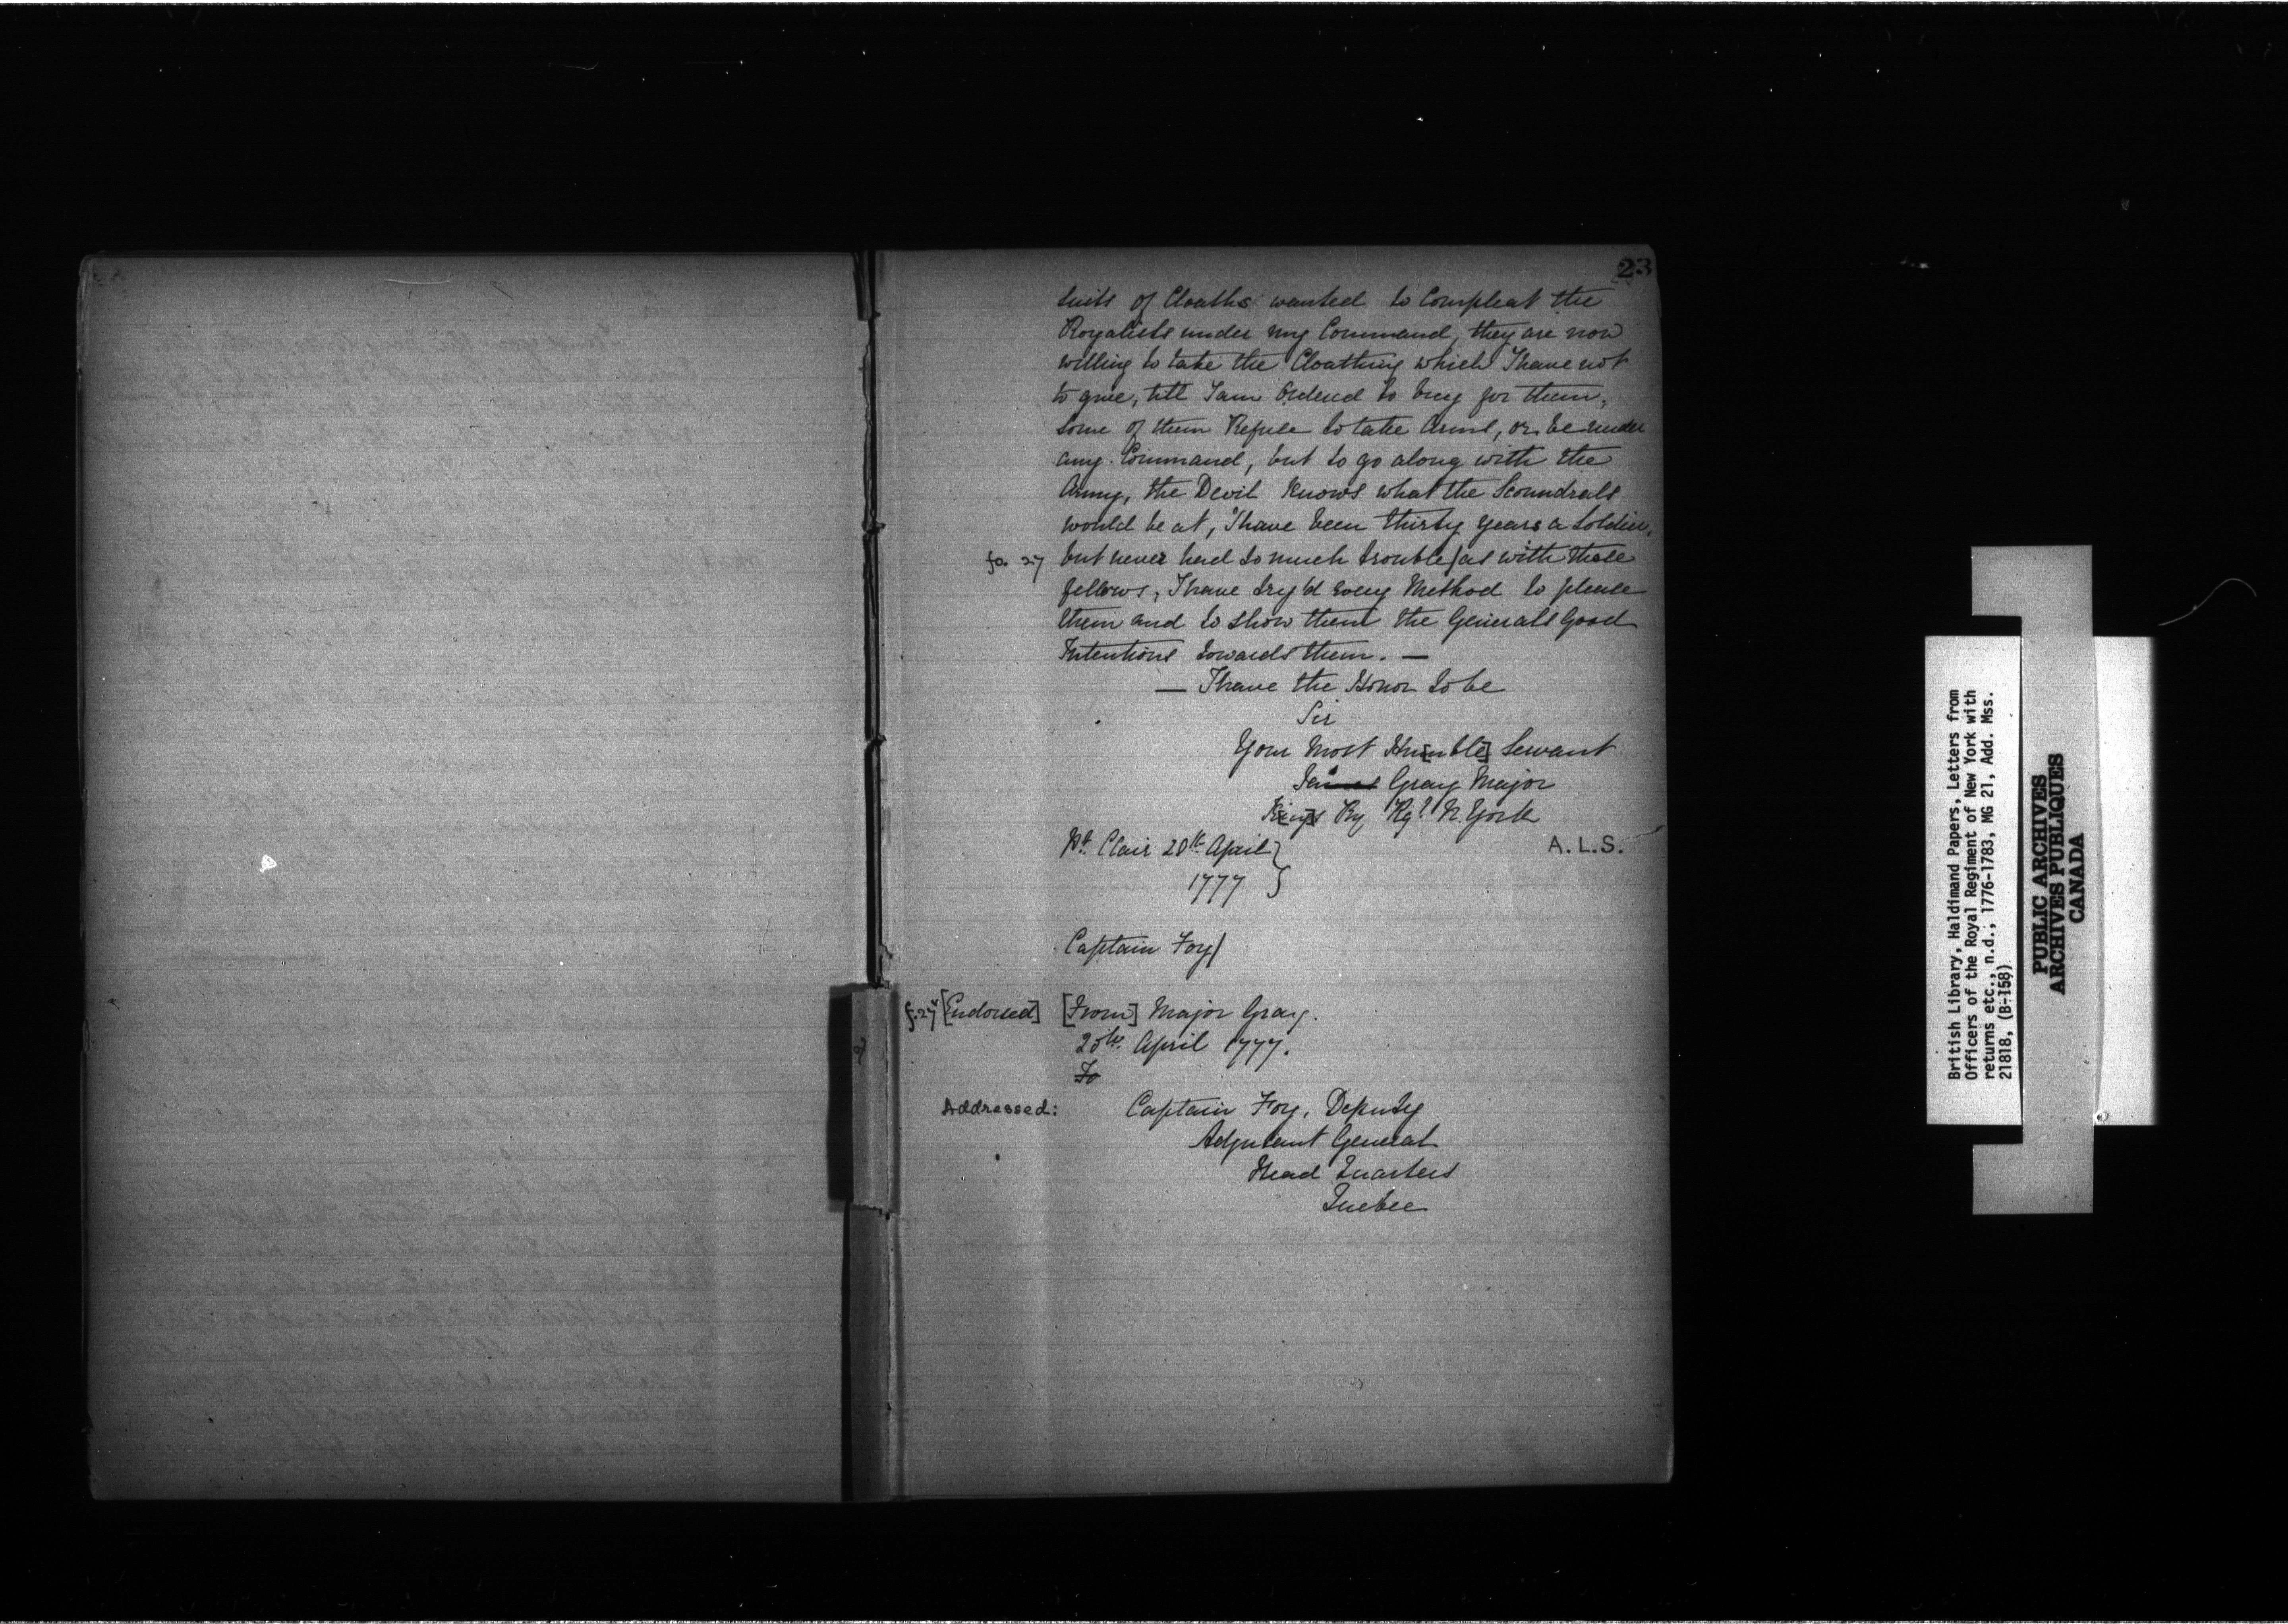 23
Suits of Cloaths wanted to Compleat the
Royalists under my Command, they are now
willing to take the Cloathing which I have not
to give, till I am Ordered to buy for them,
Some of them Refuse to take Arms, or be under
any Command, but to go along with the
Army, the Devil knows what the Scoundrals
would be at, I have been thirty years a Soldier,
fo. 27 but never had so much trouble/as with these
fellows, I have try'd Every Method to please
them and to show them the Generals Good
Intentions towards them. —
— I have the Honor to be
Sir
Your Most Hu[mble] Servant
James Gray Major
K[ing]s Ry Rgt N. York
Pt. Clair 20th April
1777
A.L.S.
Captain Foy/
f.27v [Endorsed] [From] Major Gray.
20th April 1777.
To
Addressed: Captain Foy, Deputy
Adjutant General
Head Quarters
Quebec
British Library, Haldimand Papers, Letters from
Officers of the Royal Regiment of New York with
returns etc., n.d., 1776-1783, MG 21, Add. Mss.
21818, (B-158)
PUBLIC ARCHIVES
ARCHIVES PUBLIQUES
CANADA